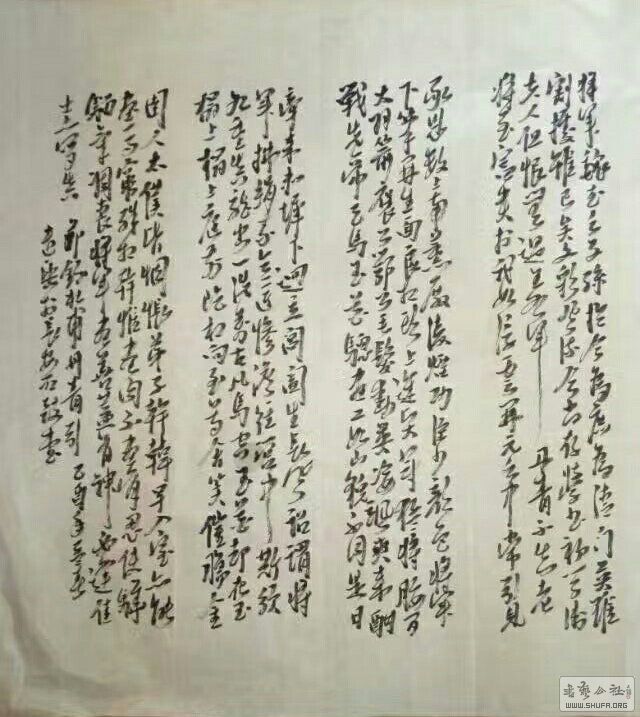 将军魏武之子孙于今为庶为清门英雄
割据虽已矣文彩风流今尚存学书初学卫
夫人但恨无过王右军丹青不知老
将至富贵于我如浮云开元之中常引见
承恩数上南熏殿凌烟功臣少颜色将军
下笔开生面良相头上进贤冠猛将腰间
大羽箭褒公鄂公毛发动英姿飒爽来酣
战先帝天马玉花骢画工如山貌不同是日
牵来赤墀下迥立阊阖生长风诏谓将
军拂绢素意匠惨澹经营中斯须
九重真龙出一洗万古凡马空玉花却在御
榻上榻上庭前屹相向至尊含笑催赐金
圉人太仆皆惆怅弟子韩幹早入室亦能
画马穷殊相幹惟画肉不画骨忍使骅
骝气凋丧将军画善盖有神必逢佳
士亦写真 节录杜甫丹青引
书于长安
书艺公社
WWW.SHUFA.ORG